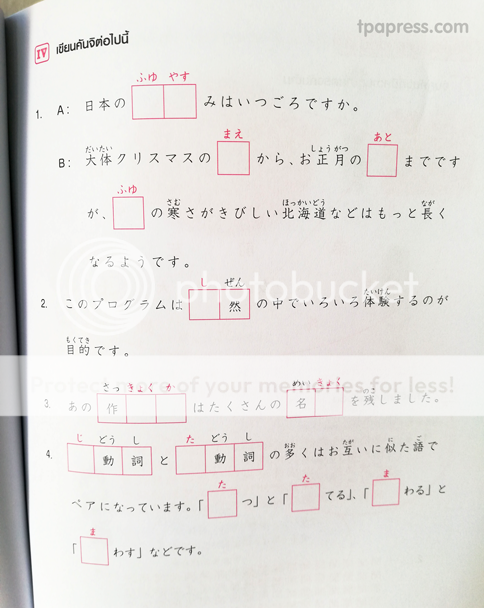 tpapress.com
IV เขียนคันจิต่อไปนี้
ふゆ やす
1. A: 日本の みはいつごろですか。
だいたい まえ しょうがつ あと
B: 大体クリスマスの から、お正月の までです
ふゆ さむ ほっかいどう なが
が、 の寒さがきびしい北海道などはもっと長く
なるようです。
photobucket
し ぜん たいけん
2. このプログラムは 然 の中でいろいろ体験するのが
もくてき
目的です。
Protect more of your memories for less!
さっ きょく か めい きょく のこ
3. あの 作 はたくさんの 名 を残しました。
じ どう し た どう し おお たが に ご
4. 動 詞 と 動 詞 の多くはお互いに似た語で
た た ま
ペアになっています。「 つ」と「 てる」、「 わる」と
ま
「 わす」などです。